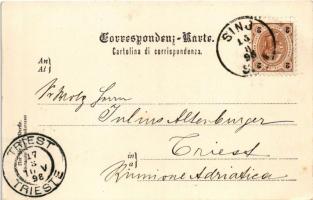 Correspondenz-Karte.
Cartolina di corrispondenza.
SINJ
An
Al
Julius Altenburger
in
a
Triest
Riunione Adriatica
TRIEST
17
V
98
TRIESTE